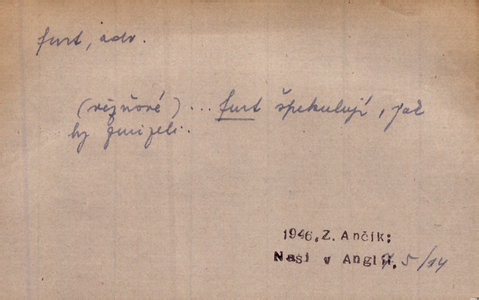 furt, adv.
(vězňové)... furt špekulují, jak
by zmizeli.
1946, Z. Ančík:
Naši v Anglii, 5/14